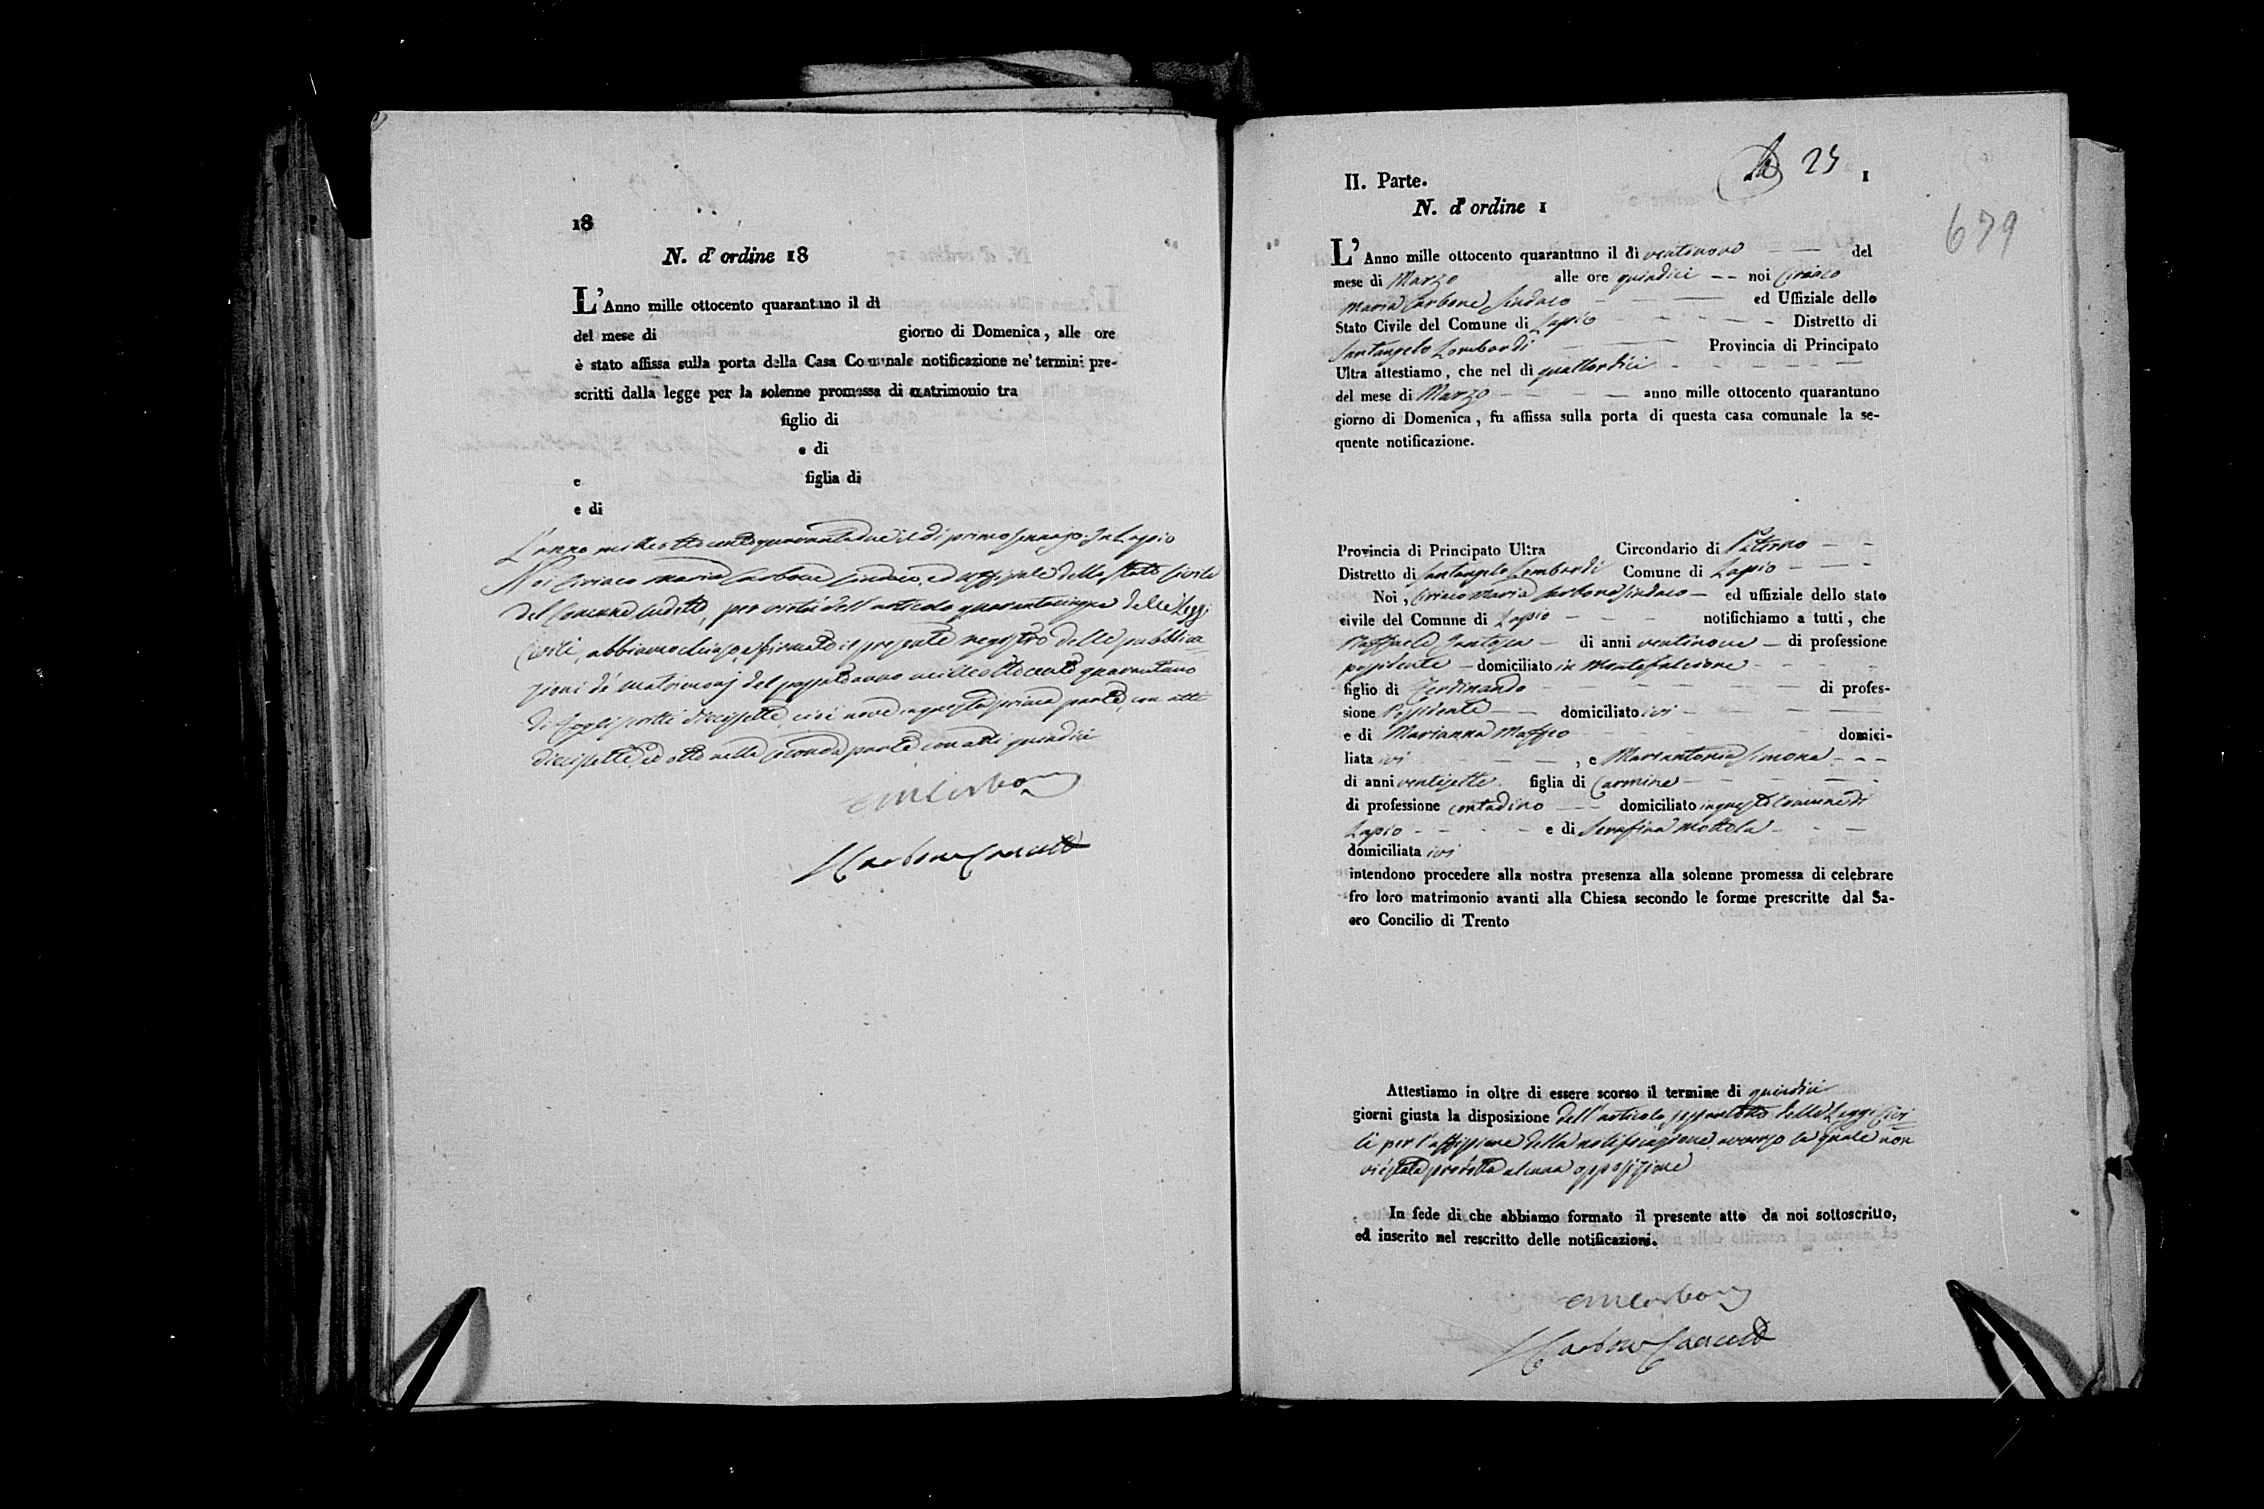 18
N. d' ordine 18
L' Anno mille ottocento quarantuno il di
del mese di giorno di Domenica, alle ore
è stato affissa sulla porta della Casa Comunale notificazione ne' termini pre-
scritti dalla legge per la solenne promessa di matrimonio tra
figlio di
e di
e figlia di
e di
L'anno milleottocentoquarantadue il di primo Gennajo. In Lapio
Noi Ciriaco Maria Carbone Sindaco, ed uffiziale dello Stato Civile
del Comune sudetto, per virtù dell'articolo quarantacinque delle Leggi
Civili, abbiamo chiuso, e firmato il presente registro delle pubblica=
zioni de' matrimonj del passato anno milleottocento quarantuno
di fogli scritti diecisette, cioè nove in questa prima parte, con atti
diecisette, ed otto nella seconda parte con atti quindici
CMCarbone
II. Parte.
25
1
N. d' ordine 1
679
L' Anno mille ottocento quarantuno il di ventinove del
mese di Marzo alle ore quindici noi Ciriaco
Maria Carbone Sindaco ed Uffiziale dello
Stato Civile del Comune di Lapio Distretto di
Santangelo Lombardi Provincia di Principato
Ultra attestiamo, che nel di quattordici
del mese di Marzo anno mille ottocento quarantuno
giorno di Domenica, fu affissa sulla porta di questa casa comunale la se-
quente notificazione.
Provincia di Principato Ultra Circondario di Paterno
Distretto di Santangelo Lombardi Comune di Lapio
Noi, Ciriaco Maria Carbone Sindaco ed uffiziale dello stato
civile del Comune di Lapio notifichiamo a tutti, che
Raffaele Santosa di anni ventinove di professione
possidente domiciliato in Montefalcione
figlio di Ferdinando di profes-
sione Possidente domiciliato ivi
e di Marianna Maffeo domici-
liata ivi , e Mariantonia Simona
di anni ventisette figlia di Carmine
di professione contadino domiciliato in questo Comune di
Lapio e di Serafina Mottola
domiciliata ivi
intendono procedere alla nostra presenza alla solenne promessa di celebrare
fro loro matrimonio avanti alla Chiesa secondo le forme prescritte dal Sa-
cro Concilio di Trento
Attestiamo in oltre di essere scorso il termine di quindici
giorni giusta la disposizione dell'articolo sessantotto delle Leggi Civi=
li per l'affissione della notificazione, avverso la quale non
vi è stata prodotta alcuna opposizione
In fede di che abbiamo formato il presente atto da noi sottoscritto,
ed inserito nel rescritto delle notificazioni.
CMCarbone